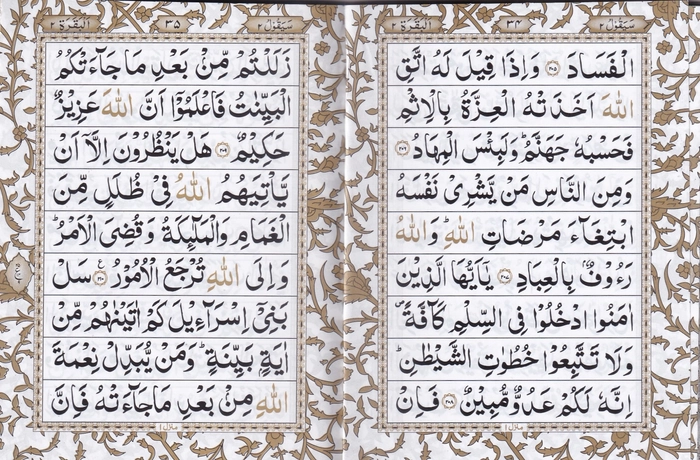 سَيَقُوْلُ ٢
٣٤
اَلْبَقَرَة ٢
الْفَسَادَ ﴿٢٠٥﴾ وَاِذَا قِيْلَ لَهُ اتَّقِ
اللّٰهَ اَخَذَتْهُ الْعِزَّةُ بِالْاِثْمِ
فَحَسْبُهٗ جَهَنَّمُ ؕ وَلَبِئْسَ الْمِهَادُ ﴿٢٠٦﴾
وَمِنَ النَّاسِ مَنْ يَّشْرِىْ نَفْسَهُ
ابْتِغَآءَ مَرْضَاتِ اللّٰهِ ؕ وَاللّٰهُ
رَءُوْفٌۢ بِالْعِبَادِ ﴿٢٠٧﴾ يٰۤاَيُّهَا الَّذِيْنَ
اٰمَنُوا ادْخُلُوْا فِى السِّلْمِ كَآفَّةً ۪
وَلَا تَتَّبِعُوْا خُطُوٰتِ الشَّيْطٰنِ ؕ
اِنَّهٗ لَكُمْ عَدُوٌّ مُّبِيْنٌ ﴿٢٠٨﴾ فَاِنْ
منزل ١
سَيَقُوْلُ ٢
٣٥
اَلْبَقَرَة ٢
زَلَلْتُمْ مِّنْۢ بَعْدِ مَا جَآءَتْكُمُ
الْبَيِّنٰتُ فَاعْلَمُوْۤا اَنَّ اللّٰهَ عَزِيْزٌ
حَكِيْمٌ ﴿٢٠٩﴾ هَلْ يَنْظُرُوْنَ اِلَّاۤ اَنْ
يَّاْتِيَهُمُ اللّٰهُ فِىْ ظُلَلٍ مِّنَ
الْغَمَامِ وَالْمَلٰٓئِكَةُ وَقُضِىَ الْاَمْرُ ؕ
وَاِلَى اللّٰهِ تُرْجَعُ الْاُمُوْرُ ﴿٢١٠﴾ سَلْ
بَنِىْۤ اِسْرَآءِيْلَ كَمْ اٰتَيْنٰهُمْ مِّنْ
اٰيَةٍۭ بَيِّنَةٍ ؕ وَمَنْ يُّبَدِّلْ نِعْمَةَ
اللّٰهِ مِنْۢ بَعْدِ مَا جَآءَتْهُ فَاِنَّ
منزل ١